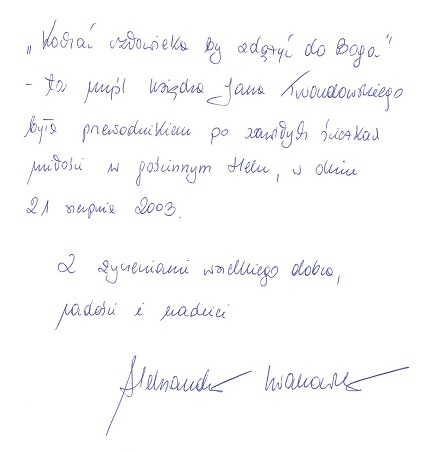 „Kochać człowieka by zdążyć do Boga"
- ta myśl księdza Jana Twardowskiego
była przewodnikiem po zawiłych ścieżkach
miłości w gościnnym Helu, w dniu
21 sierpnia 2003.
Z życzeniami wszelkiego dobra,
radości i nadziei
Aleksandra